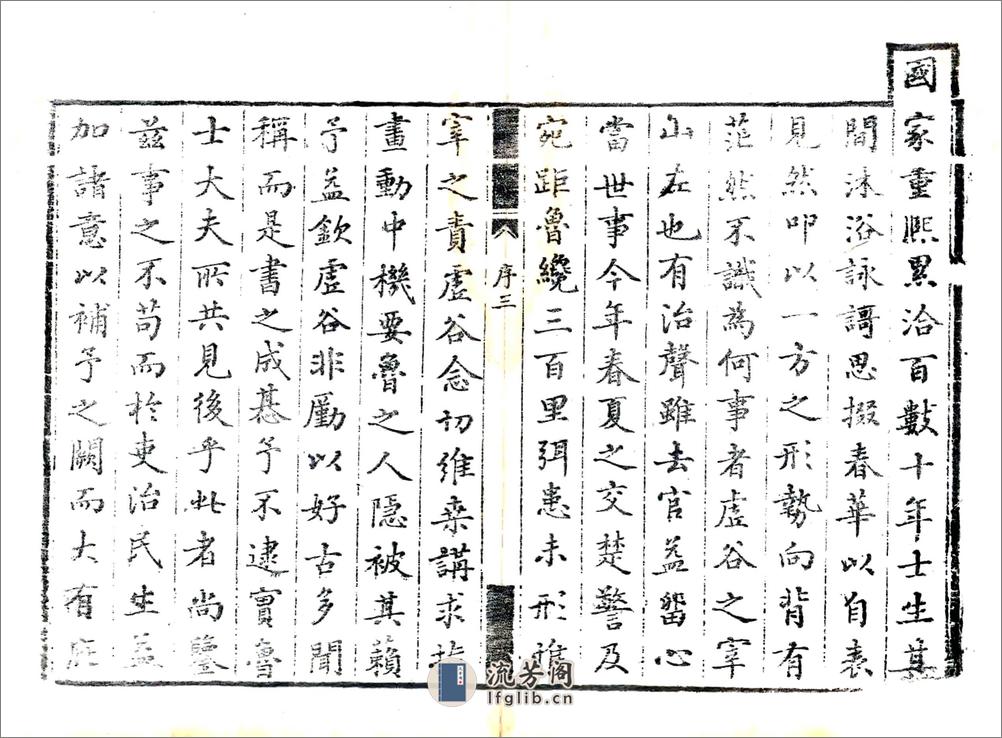 國家重熙累洽百數十年士生其
間沐浴詠謌思掇春華以自表
見然叩以一方之形勢向背有
茫然不識為何事者虛谷之宰
山左也有治聲雖去官益留心
當世事今年春夏之交楚警及
宛距魯纔三百里弭患未形雖
序三
宰之責虛谷念切維桑講求
畫動中機要魯之人隱被其賴
予益欽虛谷非勵以好古多聞
稱而是書之成惎予不逮實魯
士大夫所共見後乎此者尚鑒
茲事之不苟而於吏治民生益
加諸意以補予之闕而大有
流芳阁
lfglib.cn